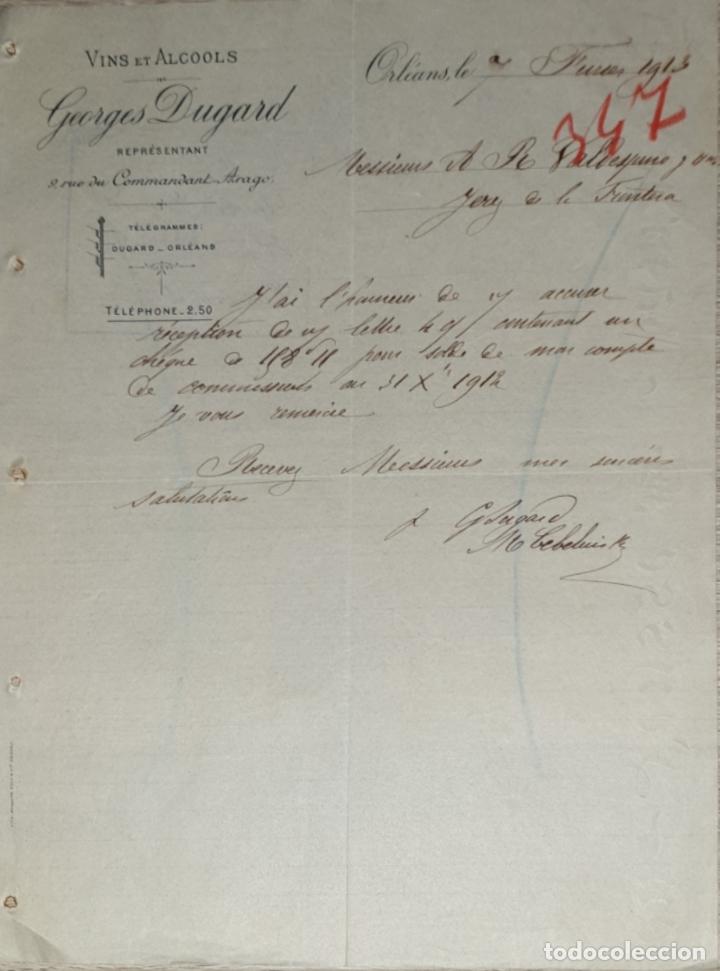 VINS ET ALCOOLS
Georges Dugard
REPRÉSENTANT
9, rue du Commandant Arago.
TÉLÉGRAMMES:
DUGARD_ORLÉANS
TÉLÉPHONE_2.50
Orléans, le 7 Février 1913
347
Messieurs A R Valdespino y
Jerez de la Frontera
J'ai l'honneur de accuser
réception de lettre contenant un
chèque de 158 11 pour solde de mon compte
de commissions au 31 Xre 1912
Je vous remercie
Recevez Messieurs mes sincères
salutations
G Dugard
todocoleccion.net